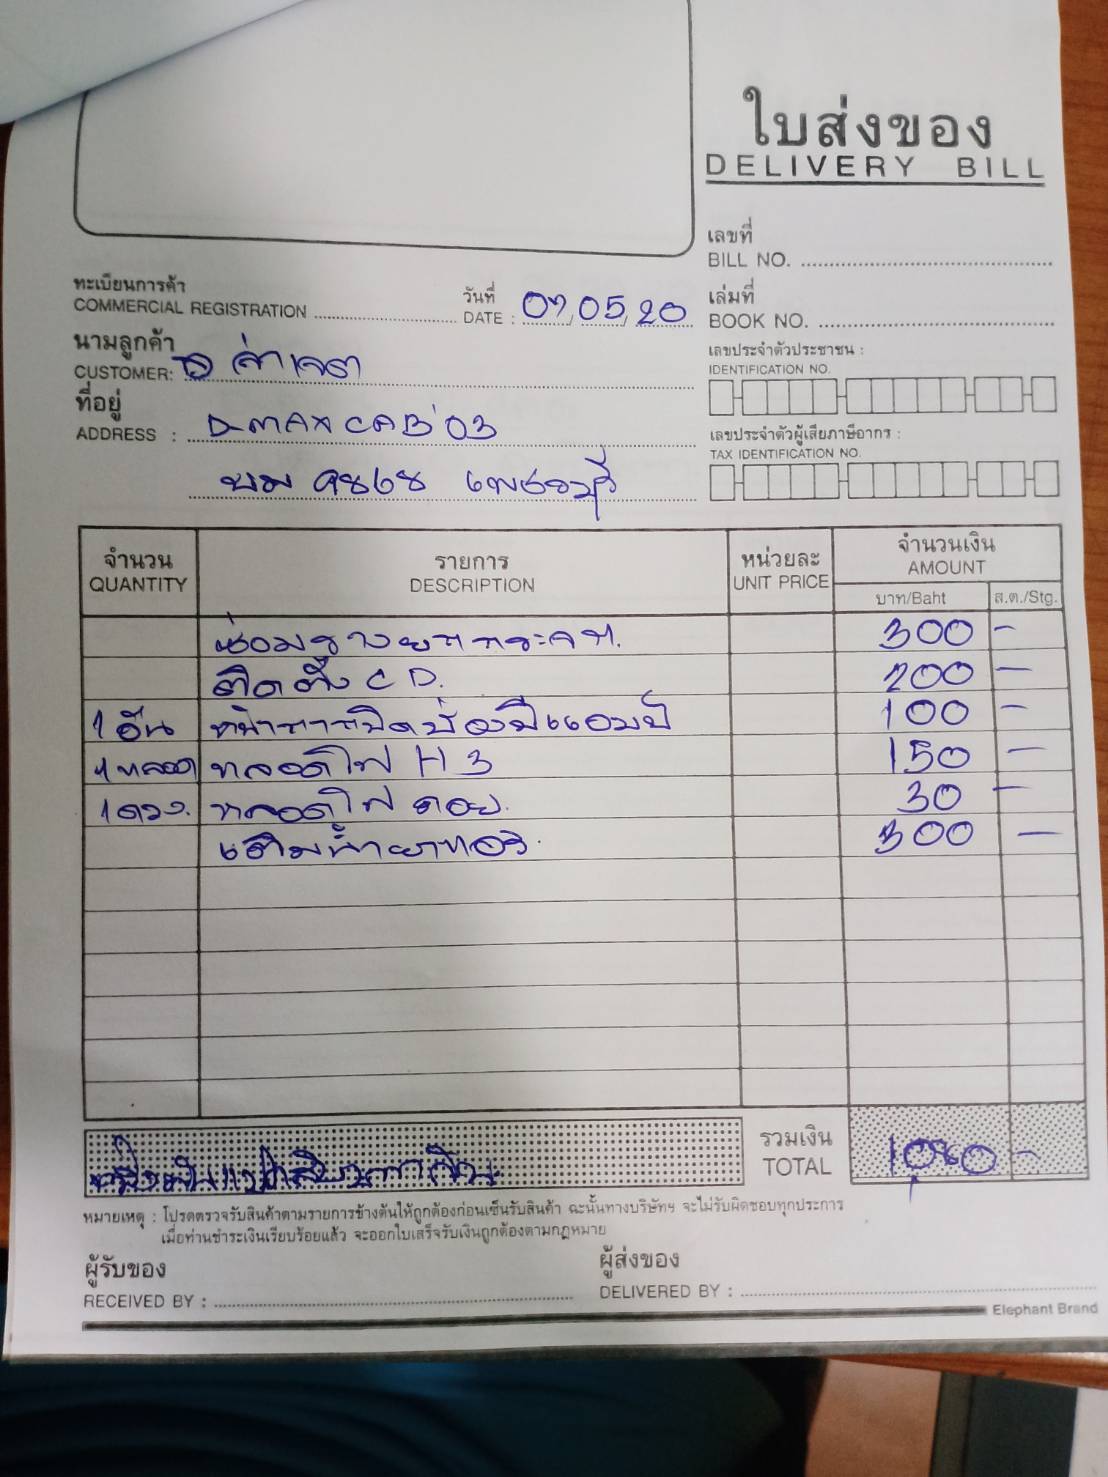 ใบส่งของ
DELIVERY BILL
เลขที่
BILL NO.
ทะเบียนการค้า
COMMERCIAL REGISTRATION
วันที่
DATE : 07,05,20
เล่มที่
BOOK NO.
นามลูกค้า
CUSTOMER:
ที่อยู่
ADDRESS : D-MAX CAB'03
เพชรบุรี
เลขประจำตัวประชาชน :
IDENTIFICATION NO.
เลขประจำตัวผู้เสียภาษีอากร :
TAX IDENTIFICATION NO.
จำนวน รายการ หน่วยละ จำนวนเงิน
QUANTITY DESCRIPTION UNIT PRICE AMOUNT
บาท/Baht ส.ต./Stg.
ซ่อมรางยกกระจก. 300 -
ติดตั้ง CD. 200 -
1 อัน หน้ากากปิดช่อง 100 -
1 หลอด หลอดไฟ H3 150 -
1 ดวง. หลอดไฟ 30 -
เติมน้ำยาแอร์. 300 -
รวมเงิน
TOTAL 1080 -
หนึ่งพันแปดสิบบาทถ้วน
หมายเหตุ : โปรดตรวจรับสินค้าตามรายการข้างต้นให้ถูกต้องก่อนเซ็นรับสินค้า ฉะนั้นทางบริษัทฯ จะไม่รับผิดชอบทุกประการ
เมื่อท่านชำระเงินเรียบร้อยแล้ว จะออกใบเสร็จรับเงินถูกต้องตามกฎหมาย
ผู้รับของ
RECEIVED BY :
ผู้ส่งของ
DELIVERED BY :
Elephant Brand